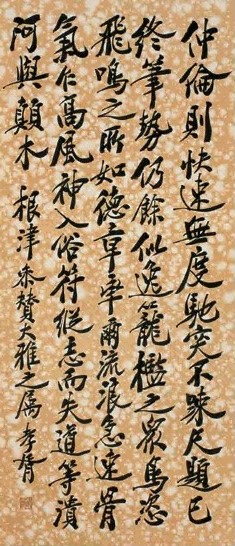 仲倫則快速無度馳突不踈尺題已
終筆勢仍餘似逸籠檻之眾馬恣
飛鳴之所如德章率爾流浪急速骨
氣乍高風神入俗符縱志而失道等潰
阿與顛木 根津叅贊大雅之屬 孝胥